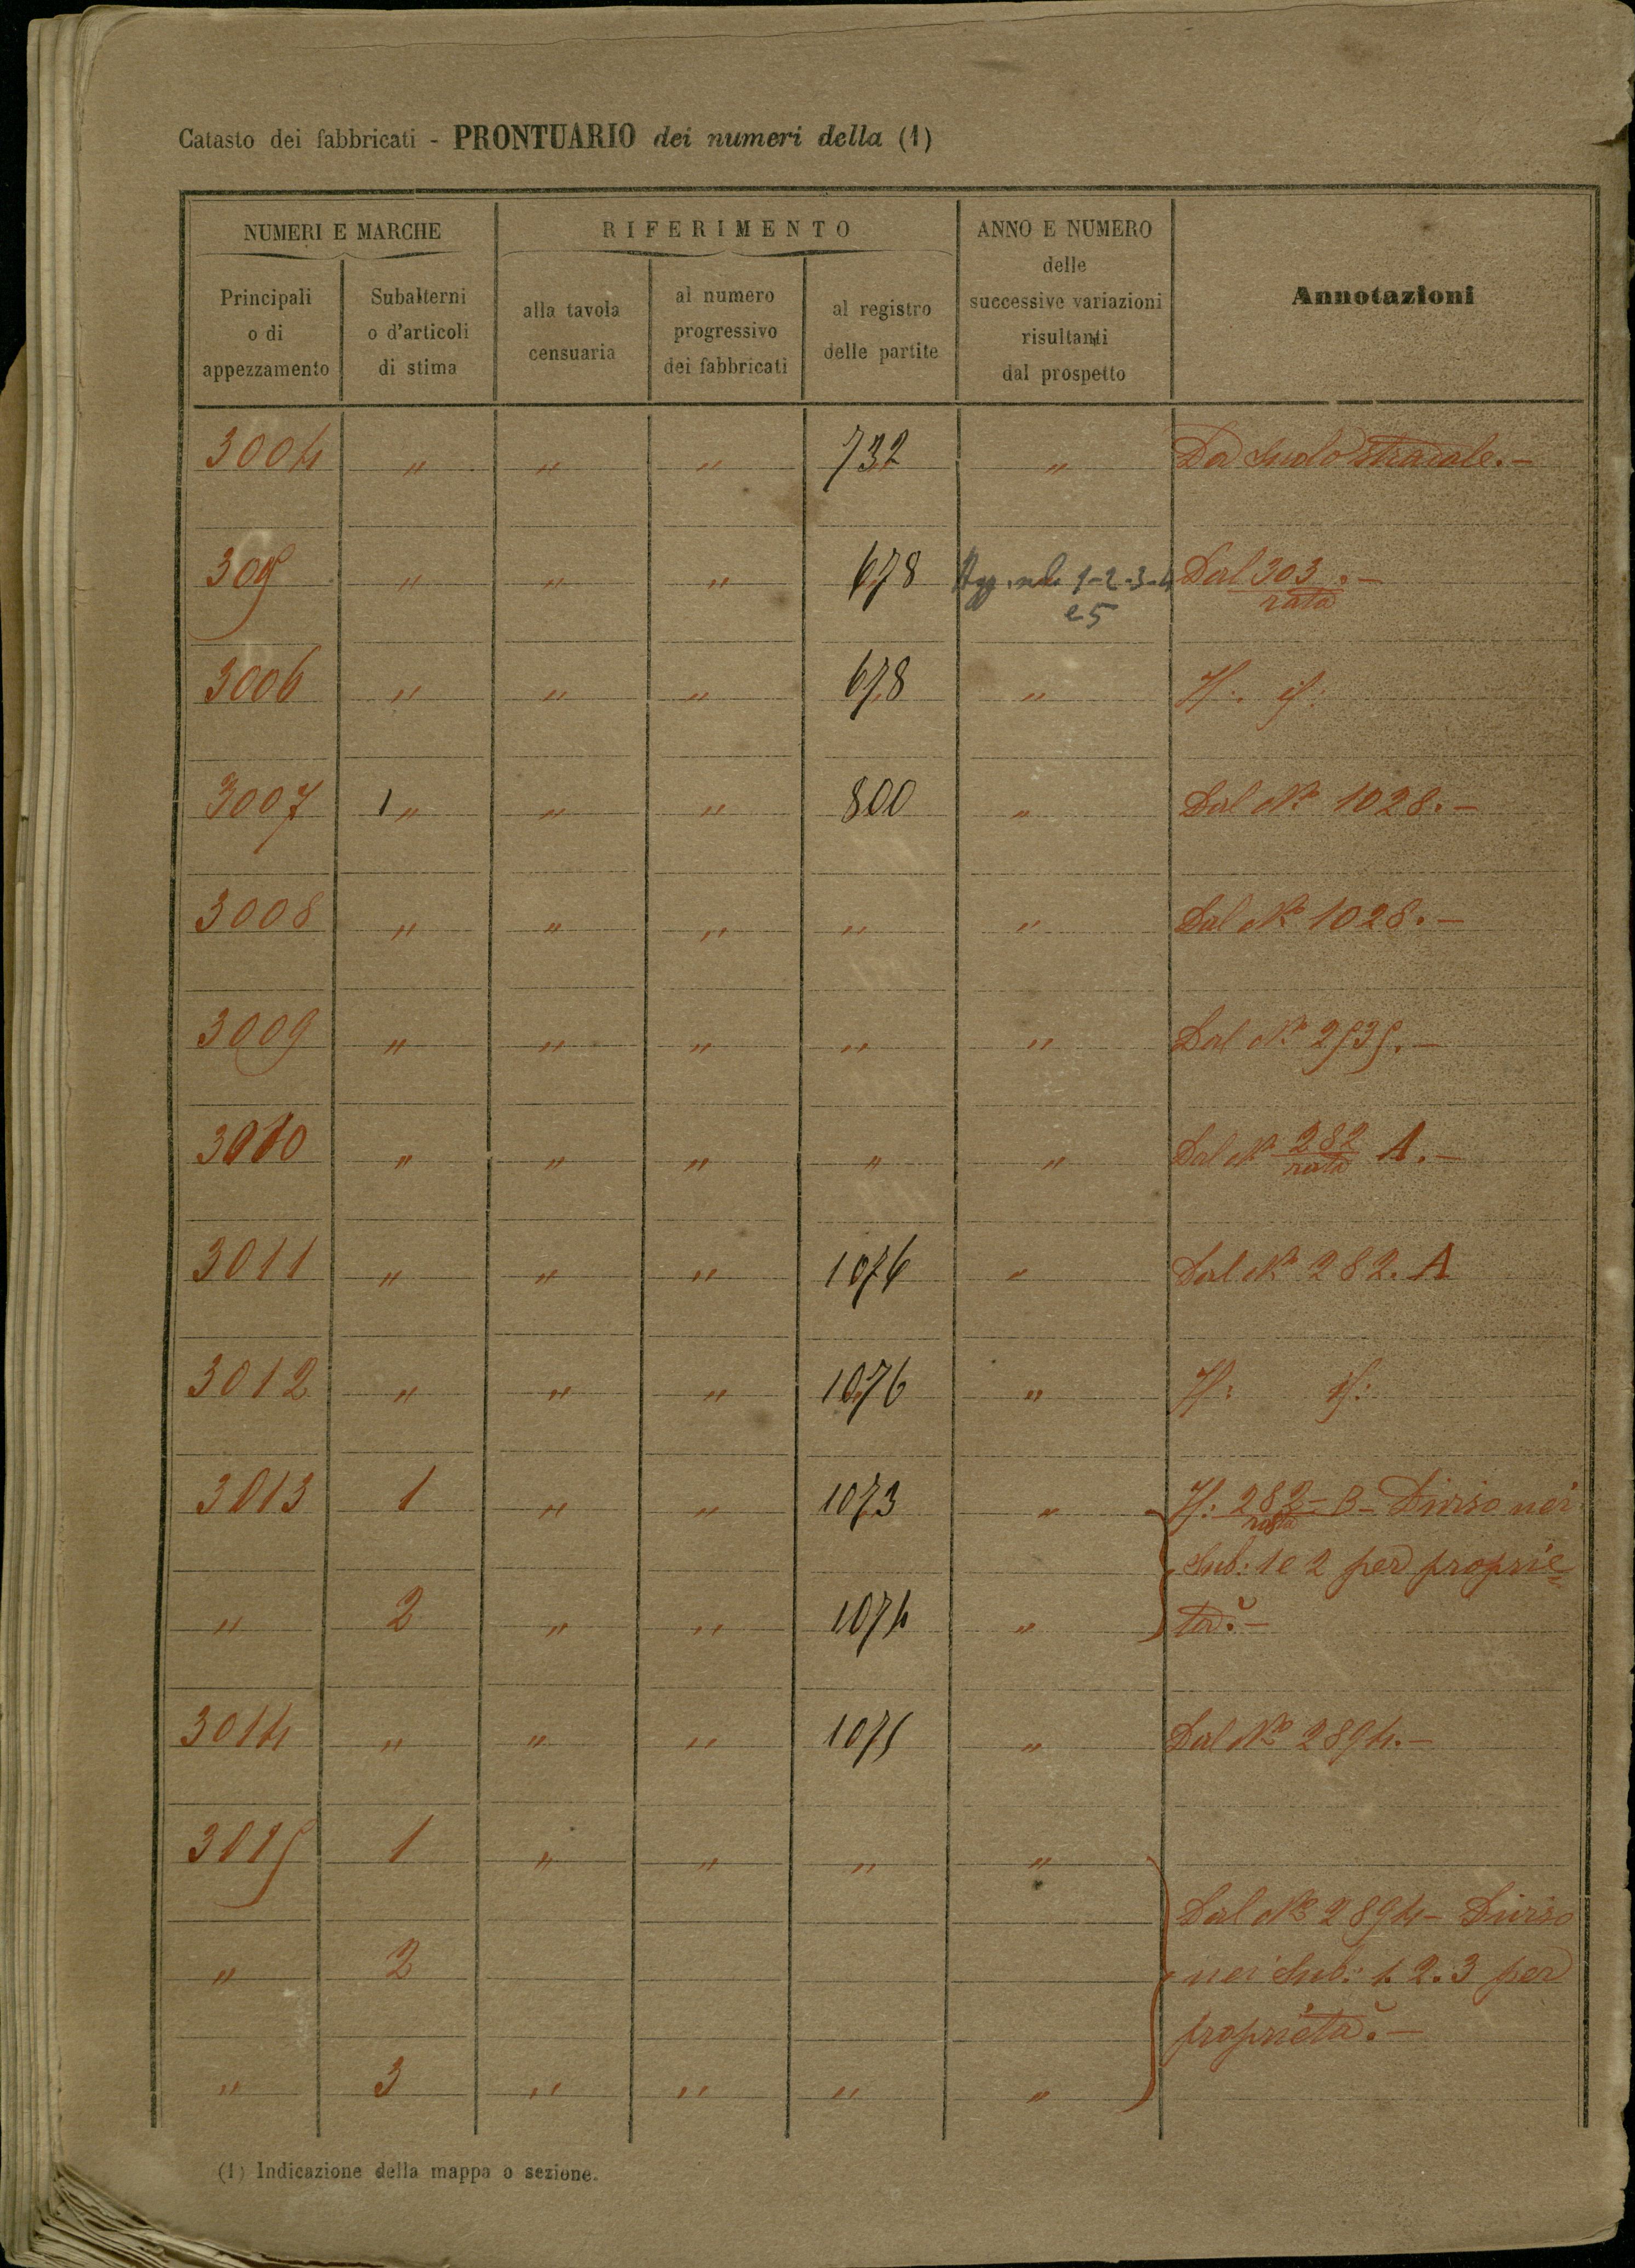 Catasto dei fabbricati - PRONTUARIO dei numeri della (1)
NUMERI E MARCHE
RIFERIMENTO
ANNO E NUMERO
delle
successive variazioni
risultanti
dal prospetto
Annotazioni
Principali
o di
appezzamento
Subalterni
o d'articoli
di stima
alla tavola
censuaria
al numero
progressivo
dei fabbricati
al registro
delle partite
3004 " " " 732 " Da suolo stradale. -
3005 " " " 678 1-2-3-4 Dal 303 . -
e 5 rata
3006 " " " 678 " If: if:
3007 1 " " " 800 " Dal N° 1028. -
3008 " " " " " Dal N° 1028. -
3009 " " " " " Dal N° 2535. -
3010 " " " " " Dal N° 282 A. -
rata
3011 " " " 1076 " Dal N° 282. A
3012 " " " 1076 " If: if:
3013 1 " " 1073 " If: 282 - B - Diviso nei
rata
Sub: 1 e 2 per proprie=
" 2 " " 1074 " tà. -
3014 " " " 1075 " Dal N° 2894. -
3015 1 " " " "
Dal N° 2894 - Diviso
" 2 nei Sub: 1. 2. 3 per
proprietà. -
" 3 " " " "
(1) Indicazione della mappa o sezione.